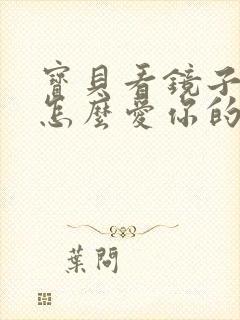 寶貝看鏡子
怎麼愛你的
葉問